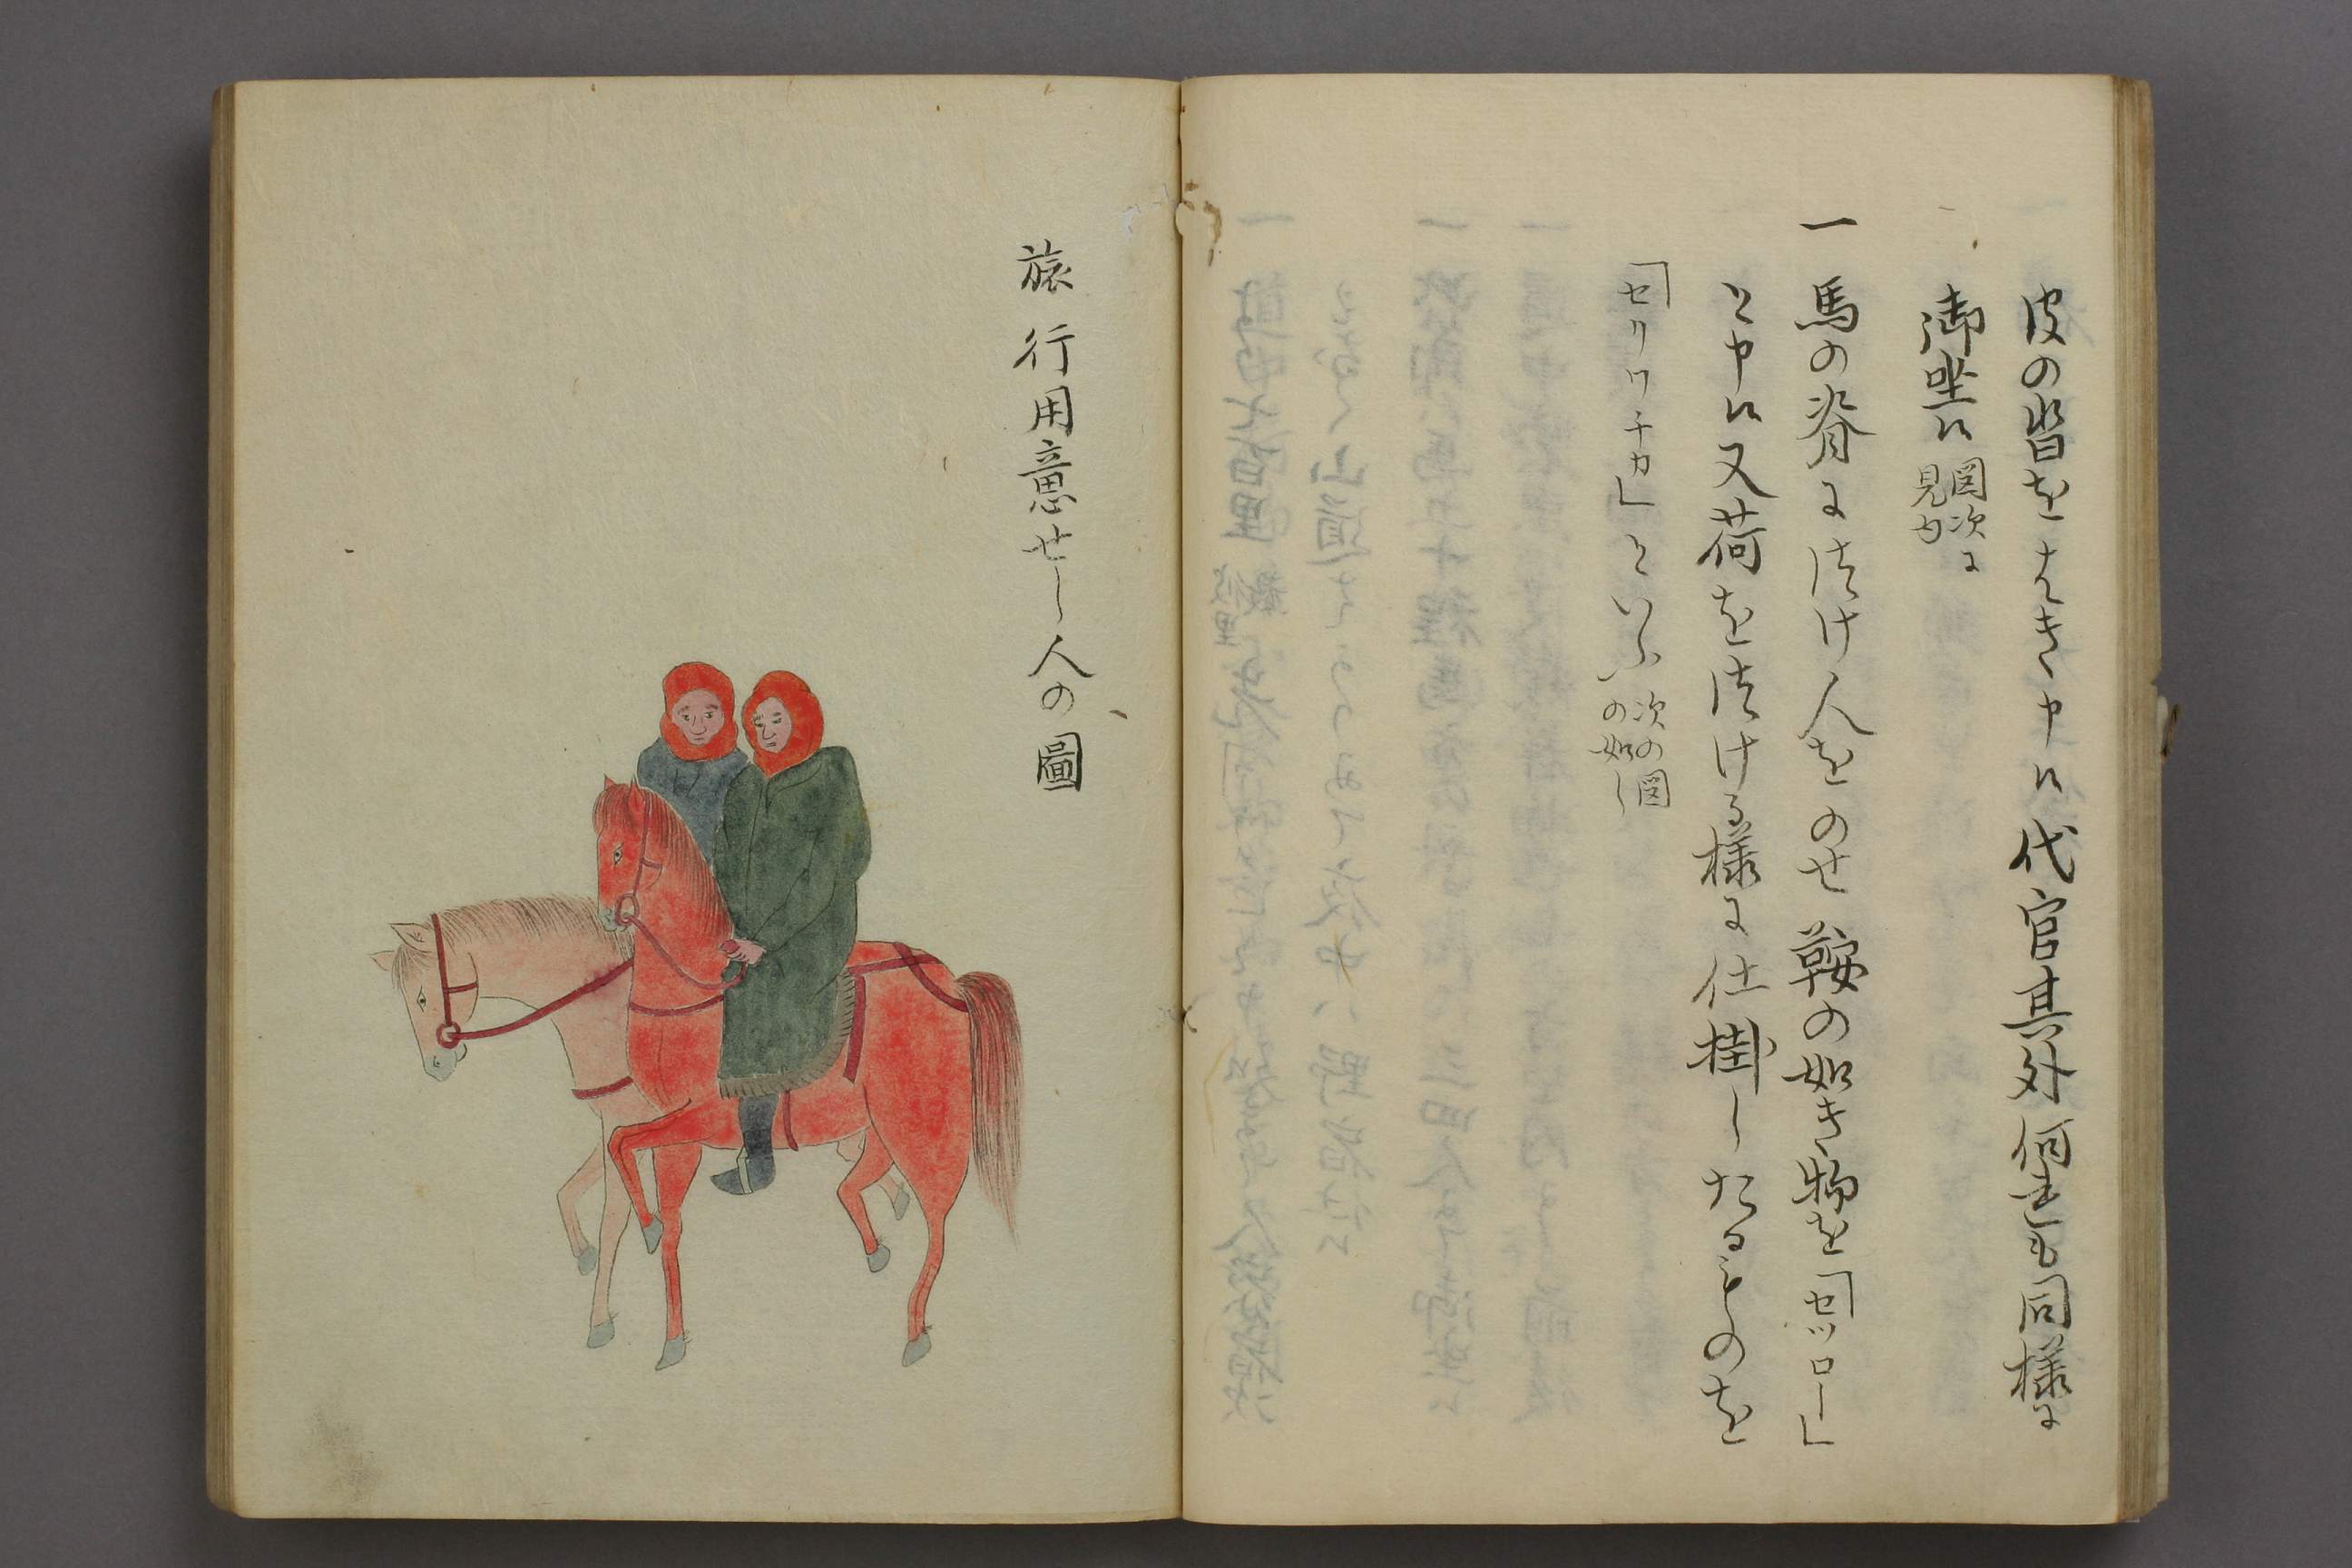 皮の沓をはき申候代官其外何連も同様に
御坐候 図次に見ゆ
一 馬の脊に徒け人をのせ鞍の如き物を「セツロー」
と申候又荷を徒ける様に仕掛したるものを
「セリワチカ」といふ 次の図の如し
旅行用意せし人の圖